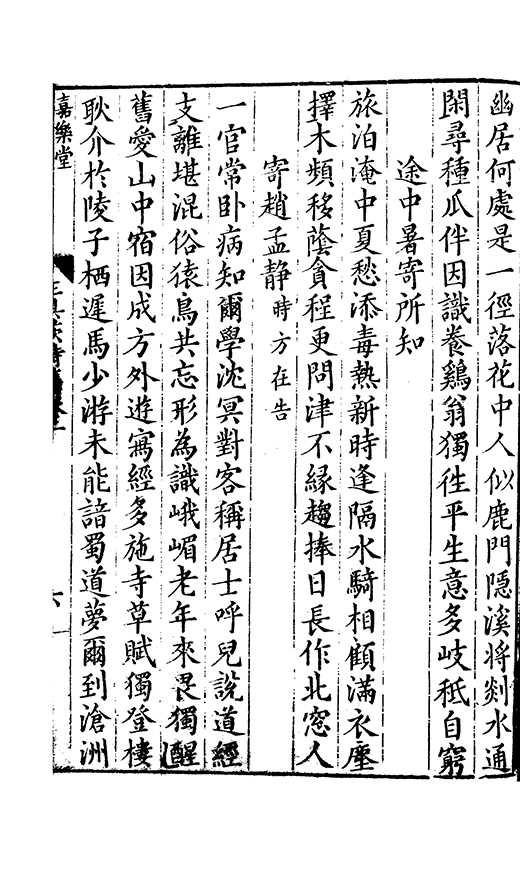 幽居何處是一徑落花中人似鹿門隱溪將剡水通
閑尋種瓜伴因識養鷄翁獨徃平生意多岐秖自窮
途中暑寄所知
旅泊淹中夏愁添毒熱新時逢隔水騎相顧滿衣塵
擇木頻移蔭貪程更問津不緣趨捧日長作北窓人
寄趙孟静時方在告
一官常卧病知爾學沈冥對客稱居士呼兒說道經
支離堪混俗猿鳥共忘形為識峨嵋老年來畏獨醒
舊愛山中宿因成方外遊寫經多施寺草賦獨登樓
耿介於陵子栖遲馬少游未能諳蜀道夢爾到滄洲
嘉樂堂
六